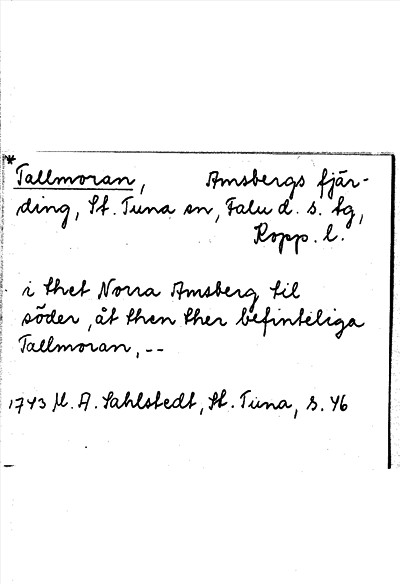 *
Tallmoran, Amsbergs fjär-
ding, St. Tuna sn, Falu d. s. tg,
Kopp. l.
i thet Norra Amsberg til
söder, åt then ther befinteliga
Tallmoran, --
1743 M. A. Sahlstedt, St. Tuna, s. 46